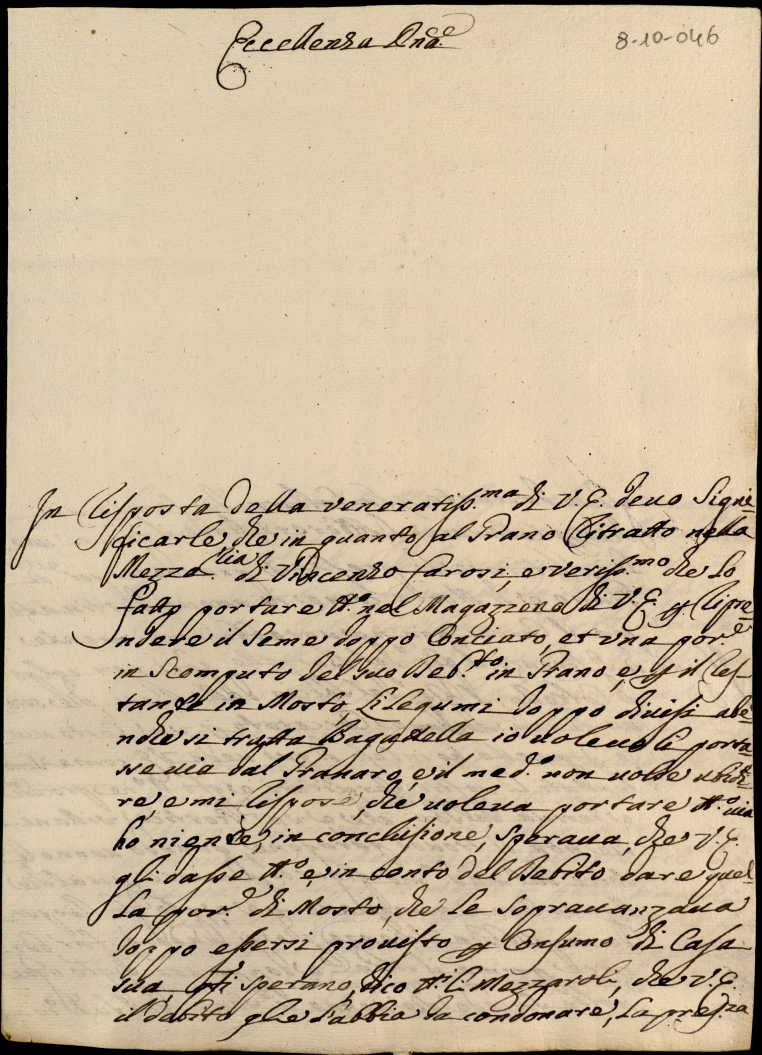 Eccellenza Pnã.ᵉ
8-10-046
In Risposta della veneratiss.ma di V.E. devo Signi=
ficarle che in quanto al Grano Ritratto nella
Mezza.lia di Vincenzo Carosi, e veriss.mo che Lo
fatto portare tt.o nel Magazzeno di V.E. p Ripre=
ndere il Seme doppo Conciato, et una por.e
in Scomputo del suo Deb.to in Grano, e p il Res=
tante in Mosto, Li Legumi doppo divisi abe=
nche si tratta Bagattella io volevo li porta=
sse via dal Granaro, e il med.o non volse ubidi=
re, e mi Rispose, che voleva portare tt.o via
ho niente, in conclusione, sperava, che V.E.
gli dasse tt.o, e in conto del Debito dare quel=
la por.e di Mosto, che le sopravanzava
doppo essersi provisto p Consumo di Casa
sua, si sperano, dico tt.i i Mezzaroli, che V.E.
il dabito glie l'abbia da condonare, La